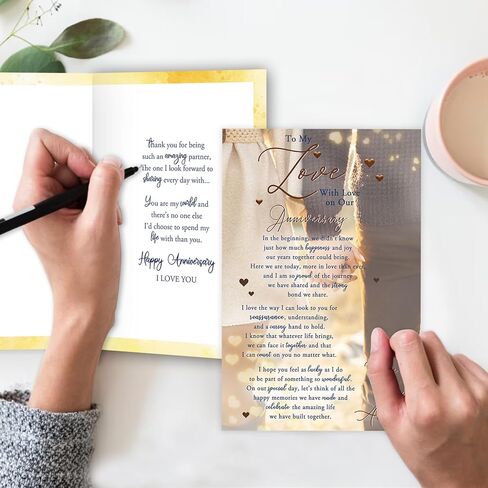 Thank you for being
such an amazing partner,
The one I look forward to
sharing every day with...
You are my world and
there's no one else
I'd choose to spend my
life with than you.
Happy Anniversary
I LOVE YOU
To My
Love
With Love
on Our
Anniversary
In the beginning, we didn't know
just how much happiness and joy
our years together could bring.
Here we are today, more in love than ever
and I am so proud of the journey
we have shared and the strong
bond we share.
I love the way I can look to you for
reassurance, understanding,
and a caring hand to hold.
I know that whatever life brings,
we can face it together and that
I can count on you no matter what.
I hope you feel as lucky as I do
to be part of something so wonderful.
On our special day, let's think of all the
happy memories we have made and
celebrate the amazing life
we have built together.